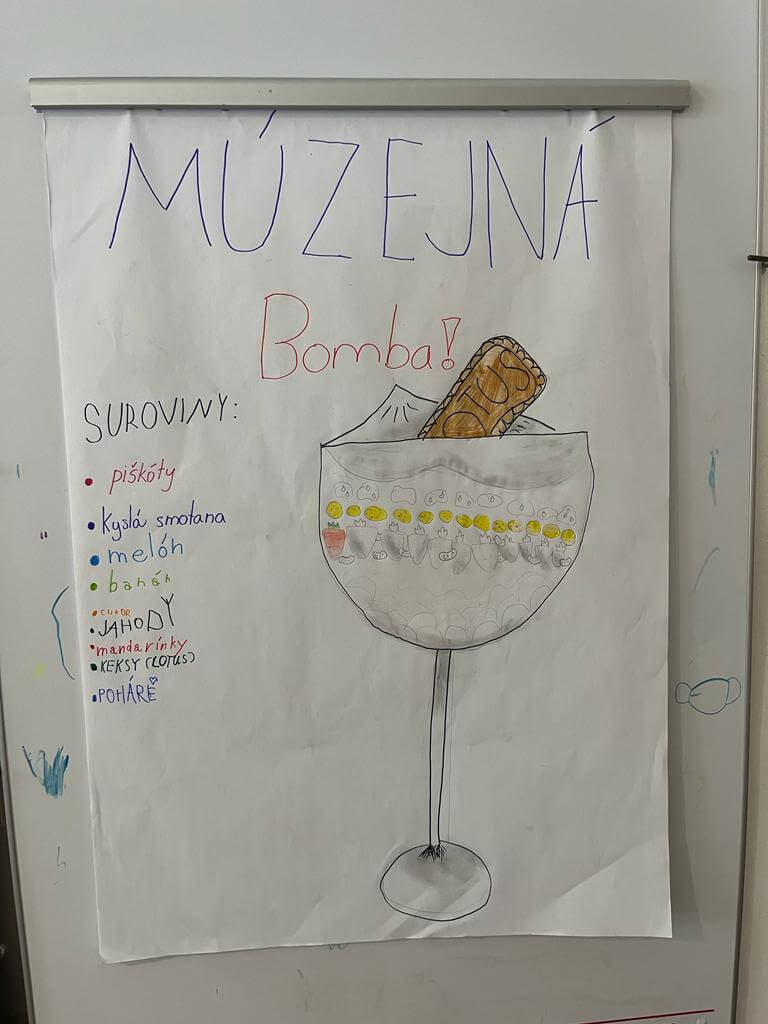 MÚZEJNÁ
Bomba!
OTUS
SUROVINY:
• piškóty
• Kyslá smotana
• melón
• banán
• CUKOR
• JAHODY
• mandarínky
• KEKSY (LOTUS)
• POHÁRE